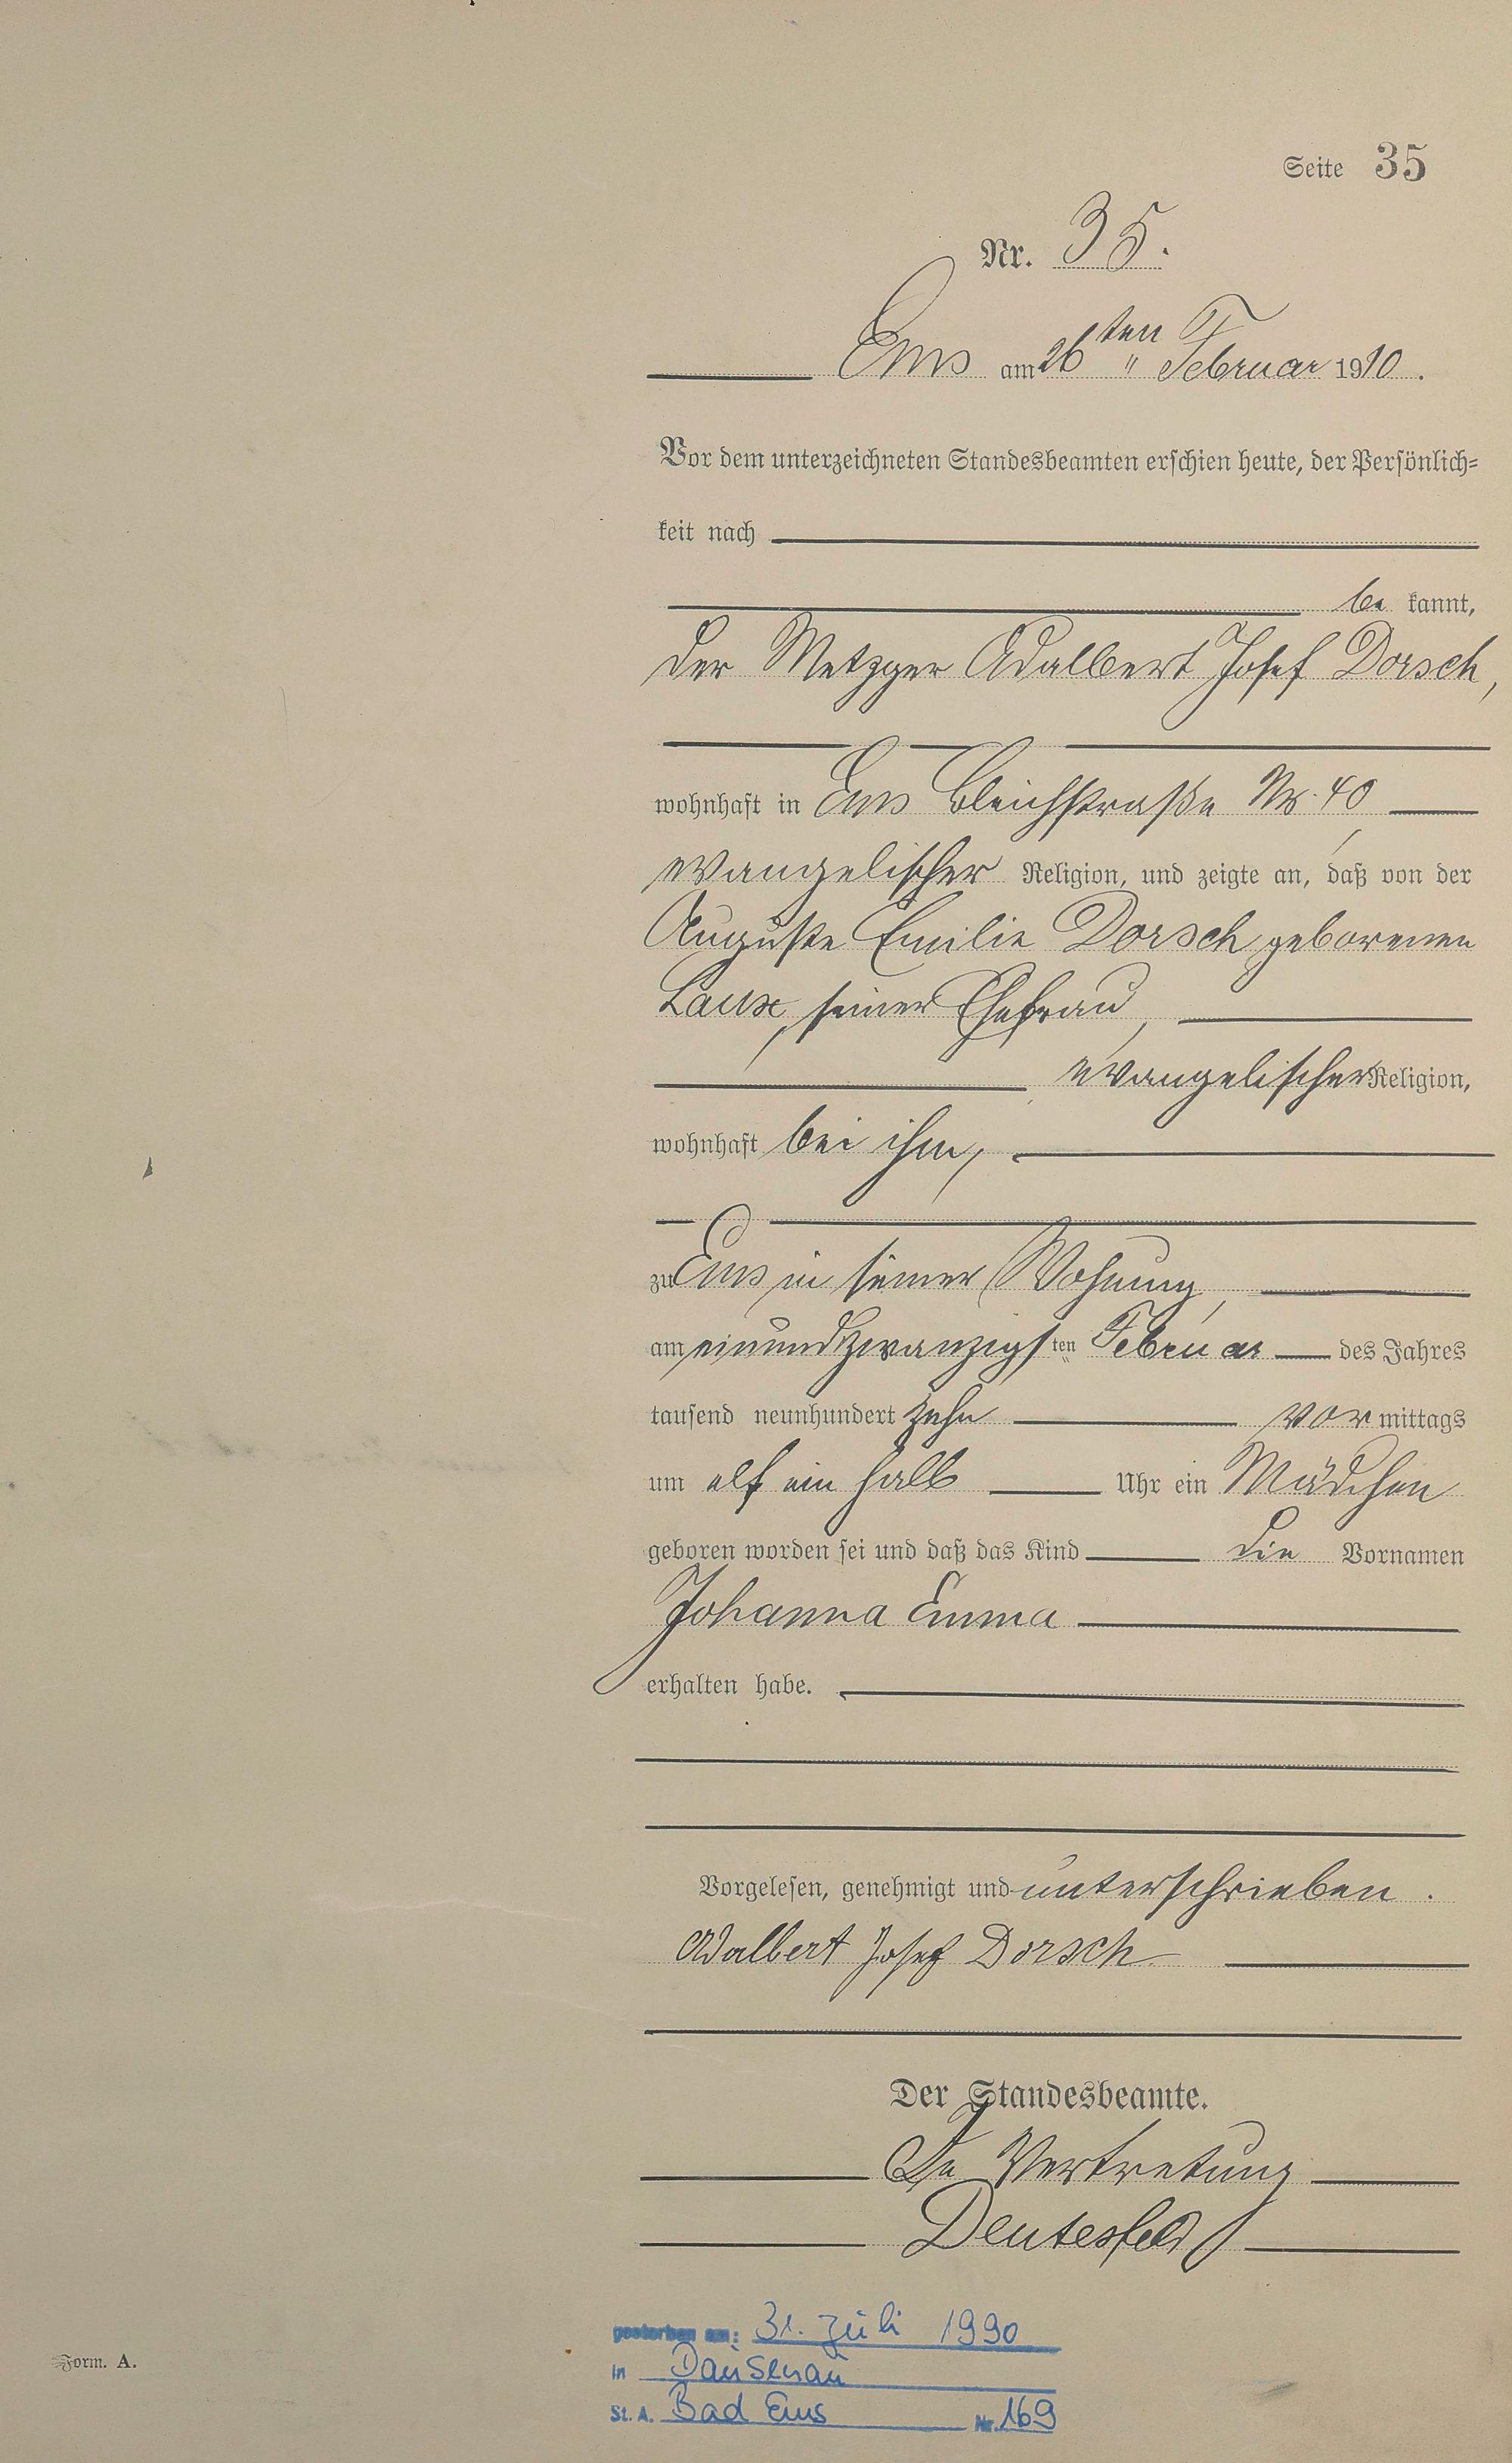 Seite 35
Nr. 35.
Ems am 26ten Februar 1910.
Vor dem unterzeichneten Standesbeamten erschien heute, der Persönlich-
keit nach
be kannt,
der Metzger Adalbert Josef Dorsch,
wohnhaft in Ems Bleichstraße Nr. 40
evangelischer Religion, und zeigte an, daß von der
Auguste Emilie Dorsch geborenen
Laux, seiner Ehefrau,
evangelischer Religion,
wohnhaft bei ihm,
zu Ems in seiner Wohnung,
am einundzwanzigsten Februar des Jahres
tausend neunhundert zehn vor mittags
um elf ein halb Uhr ein Mädchen
geboren worden sei und daß das Kind die Vornamen
Johanna Emma
erhalten habe.
Vorgelesen, genehmigt und unterschrieben.
Adalbert Josef Dorsch
Der Standesbeamte.
In Vertretung
Deutesfeld
gestorben am: 31. Juli 1990
in Dausenau
St. A. Bad Ems Nr. 169
Form. A.